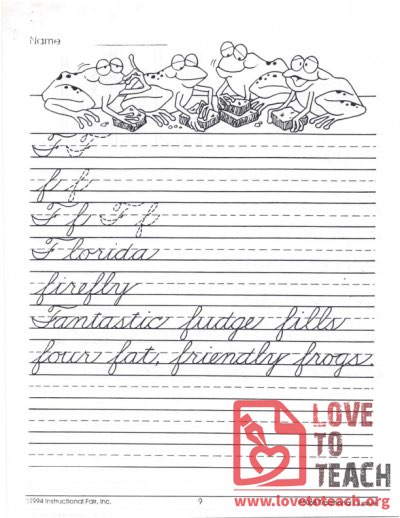 Name
F F
f f
F f F f
Florida
firefly
Fantastic fudge fills
four fat, friendly frogs.
LOVE
TO
TEACH
©1994 Instructional Fair, Inc.
9
www.lovetoteach.org